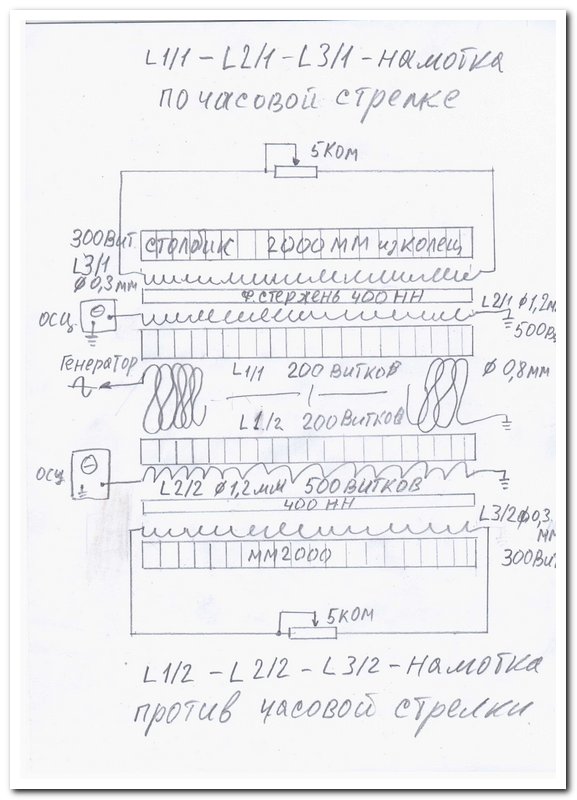 L1/1 – L2/1 – L3/1 – намотка
по часовой стрелке
5 ком
300 Вит.
столбик 2000 мм из колец
L3/1
ф 0,3 мм
ф. стержень 400 НН
L2/1 ф 1,2м
осц.
500в
Генератор
L1/1 200 витков
ф 0,8мм
L1/2 200 витков
осц
L2/2 ф 1,2мм 500 витков
400 НН
L3/2 ф 0,3
мм
мм2000
300 Вит
5 ком
L1/2 – L2/2 – L3/2 – намотка
против часовой стрелки